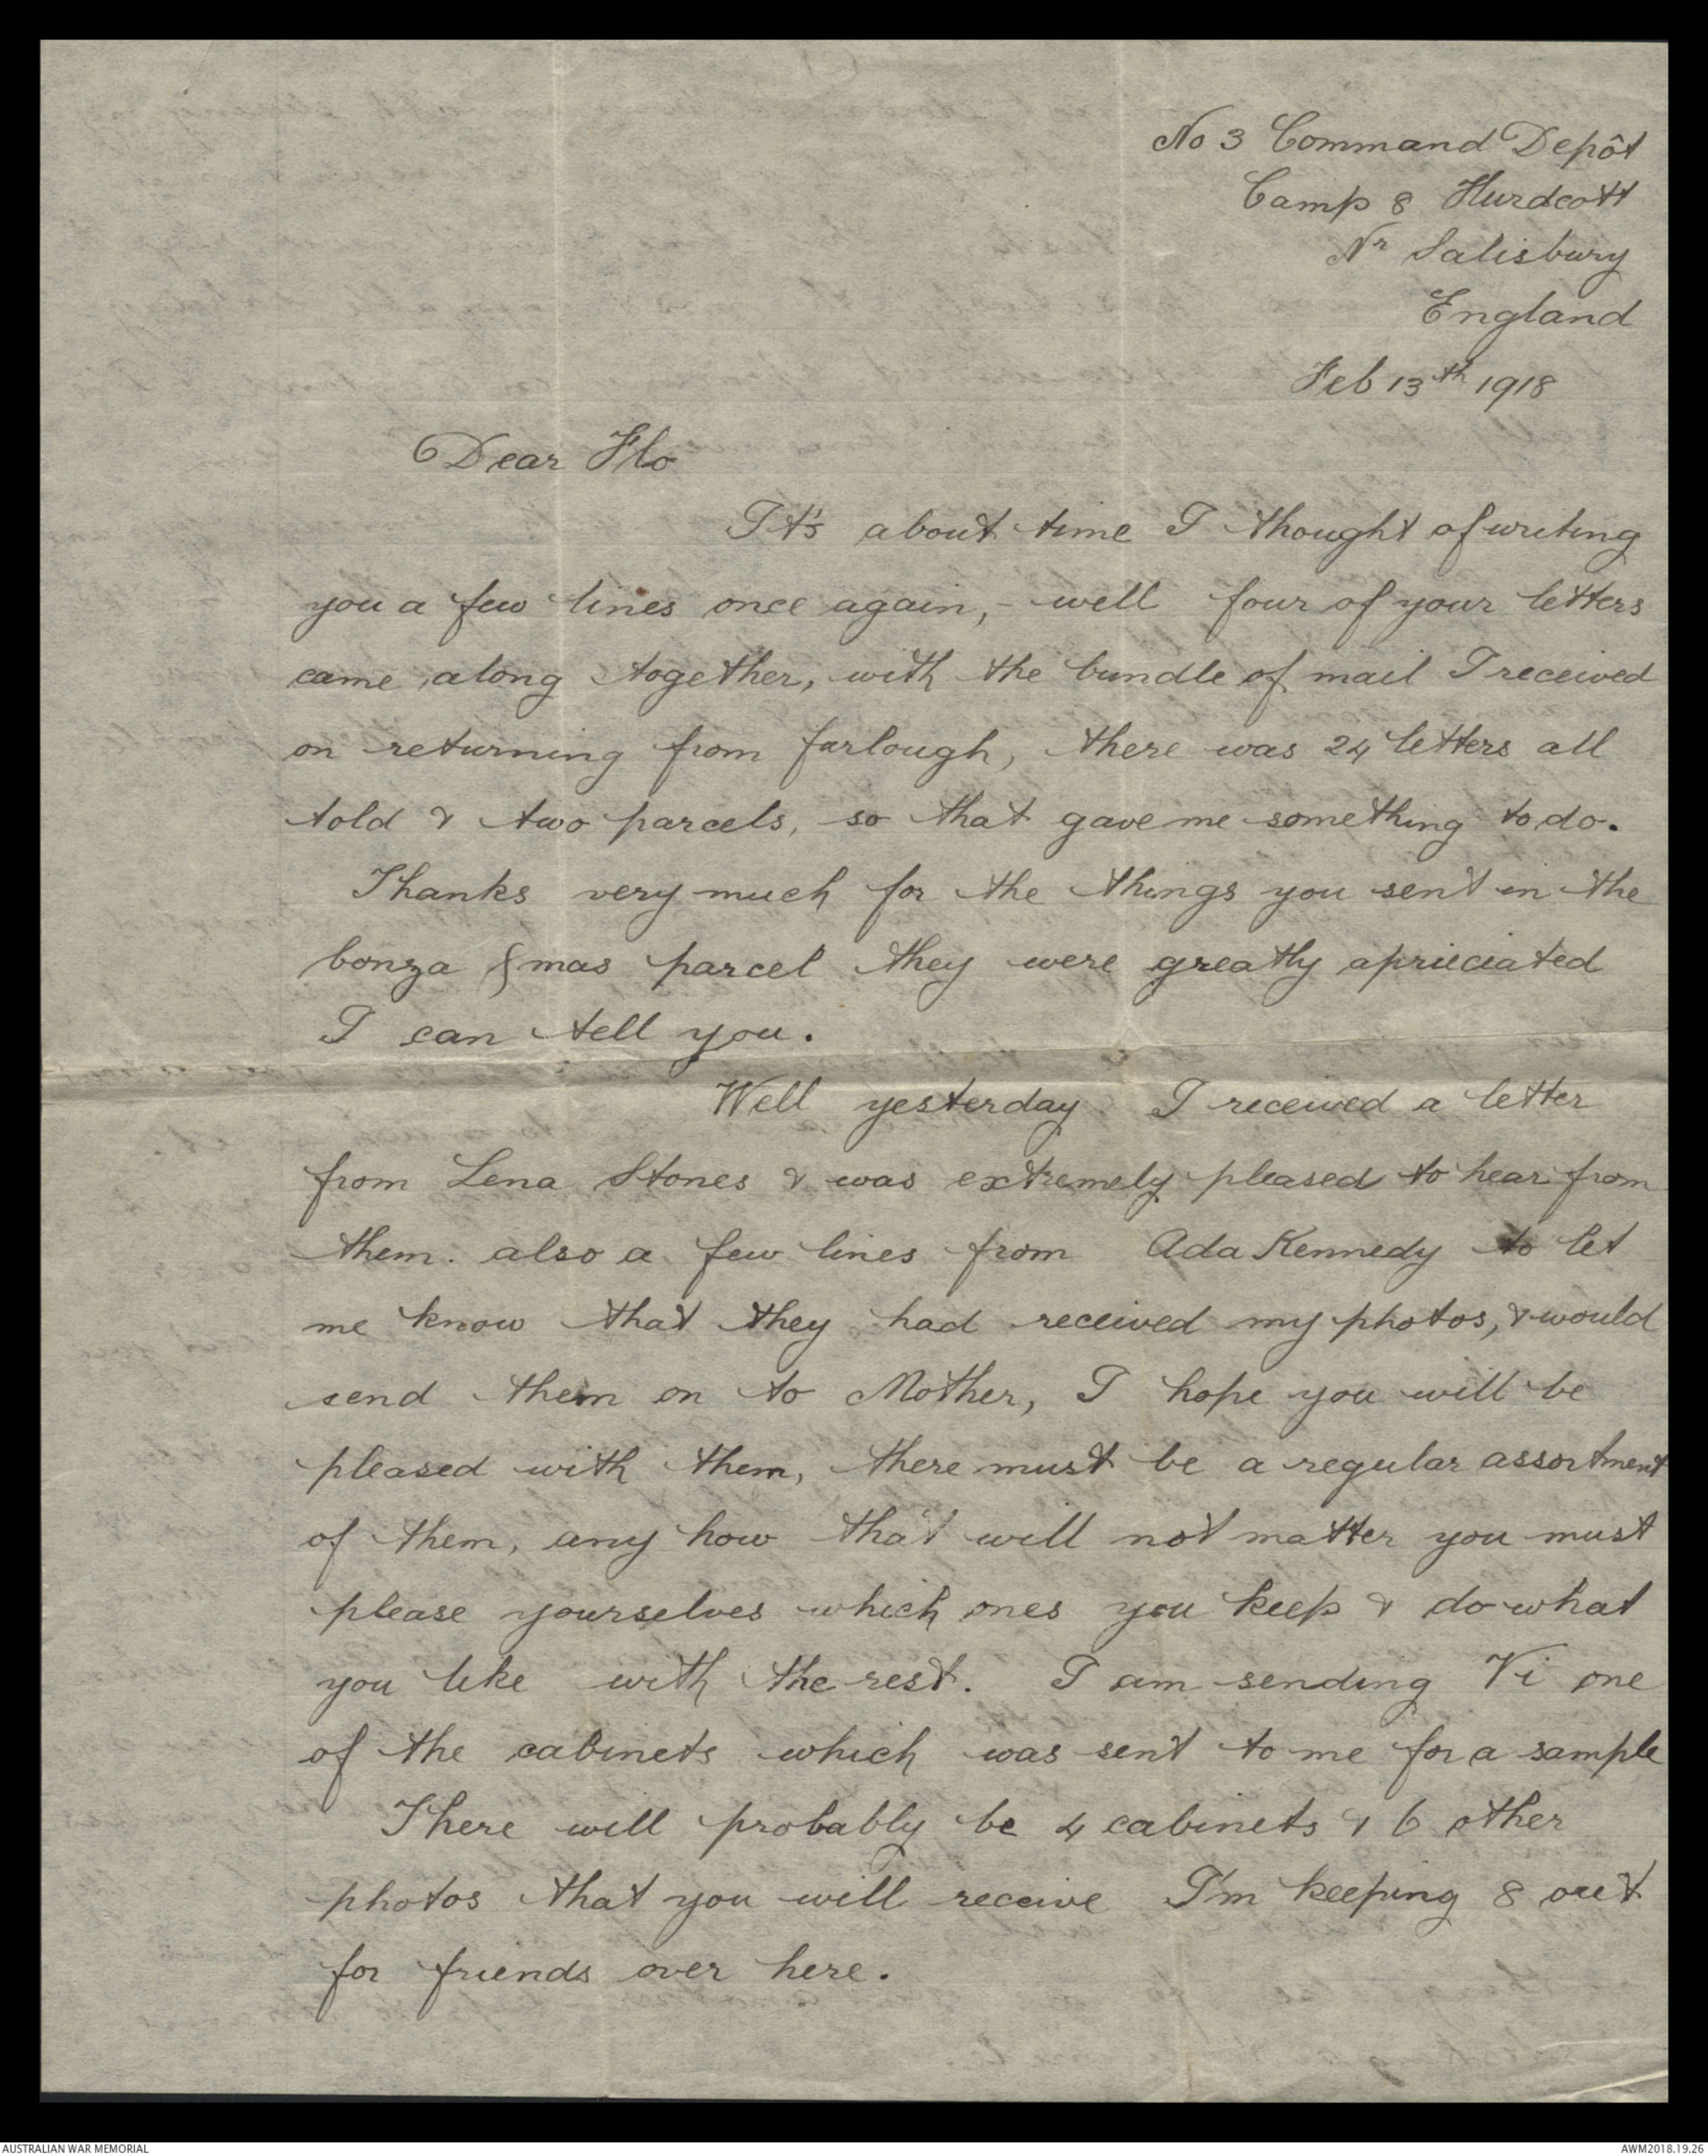 No 3 Command Depôt
Camp 8 Hurdcott
Nr Salisbury
England
Feb 13th 1918
Dear Flo
It's about time I thought of writing
you a few lines once again, - well four of your letters
came along together, with the bundle of mail I received
on returning from furlough, there was 24 letters all
told & two parcels, so that gave me something to do.
Thanks very much for the things you sent in the
bonza Xmas parcel they were greatly apriciated
I can tell you.
Well yesterday I received a letter
from Lena Stones & was extremely pleased to hear from
them. also a few lines from Ada Kennedy to let
me know that they had received my photos, & would
send them on to Mother, I hope you will be
pleased with them, there must be a regular assortment
of them, any how that will not matter you must
please yourselves which ones you keep & do what
you like with the rest. I am sending Vi one
of the cabinets which was sent to me for a sample
There will probably be 4 cabinets & 6 other
photos that you will receive I'm keeping 8 out
for friends over here.
AUSTRALIAN WAR MEMORIAL
AWM2018.19.26